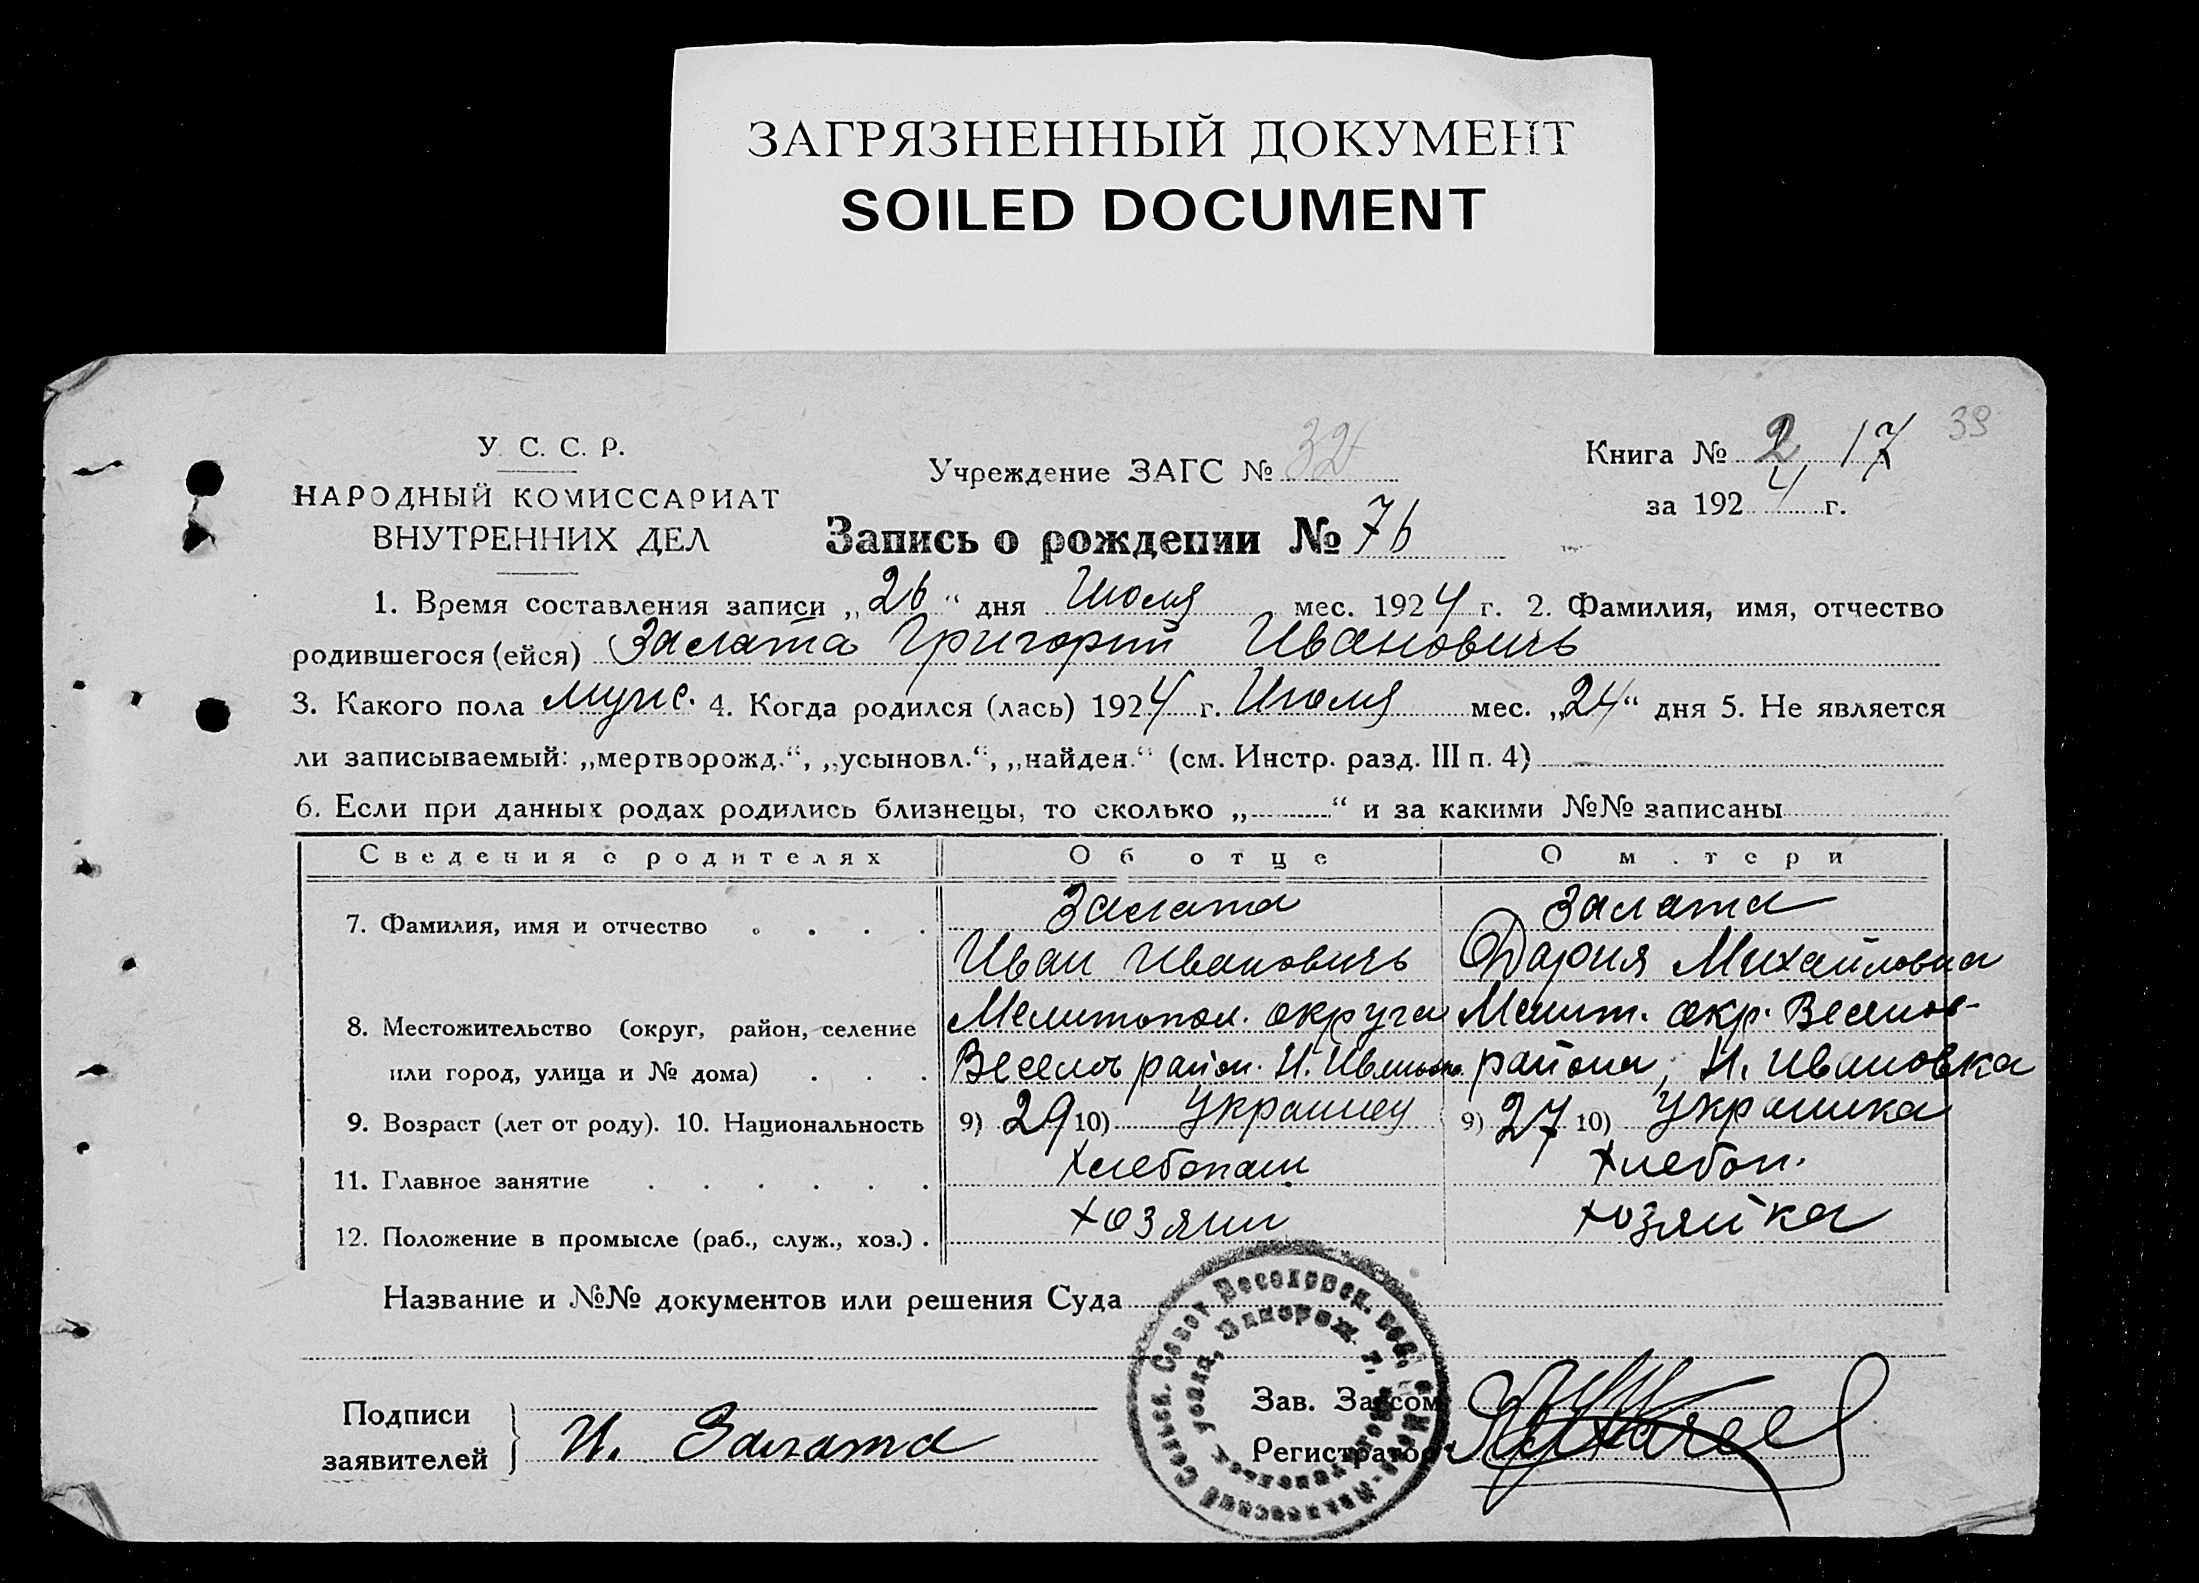 ЗАГРЯЗНЕННЫЙ ДОКУМЕНТ
SOILED DOCUMENT
39
У. С. С. Р.
НАРОДНЫЙ КОМИССАРИАТ
ВНУТРЕННИХ ДЕЛ
Учреждение ЗАГС № 32
Книга № 2, 17
за 1924 г.
Запись о рождении № 76
1. Время составления записи „26“ дня Июля мес. 1924 г. 2. Фамилия, имя, отчество
родившегося (ейся) Залата Григорий Ивановичь
3. Какого пола муж. 4. Когда родился (лась) 1924 г. Июля мес. „24“ дня 5. Не является
ли записываемый: „мертворожд.“, „усыновл.“, „найден.“ (см. Инстр. разд. III п. 4)
6. Если при данных родах родились близнецы, то сколько „ “ и за какими №№ записаны
Сведения о родителях Об отце О м.тери
7. Фамилия, имя и отчество Залата Залата
Иван Ивановичь Дария Михайловна
8. Местожительство (округ, район, селение Мелитопол. округа Мелит. окр. Веселов-
или город, улица и № дома) Веселов район. Н. района, Н. Ивановка
9. Возраст (лет от роду). 10. Национальность 9) 29 10) Украинец 9) 27 10) Украинка
11. Главное занятие Хлебопаш Хлебоп.
12. Положение в промысле (раб., служ., хоз.) Хозяин Хозяйка
Название и №№ документов или решения Суда
Подписи
заявителей И. Залата
Зав. Загсом
Регистратор